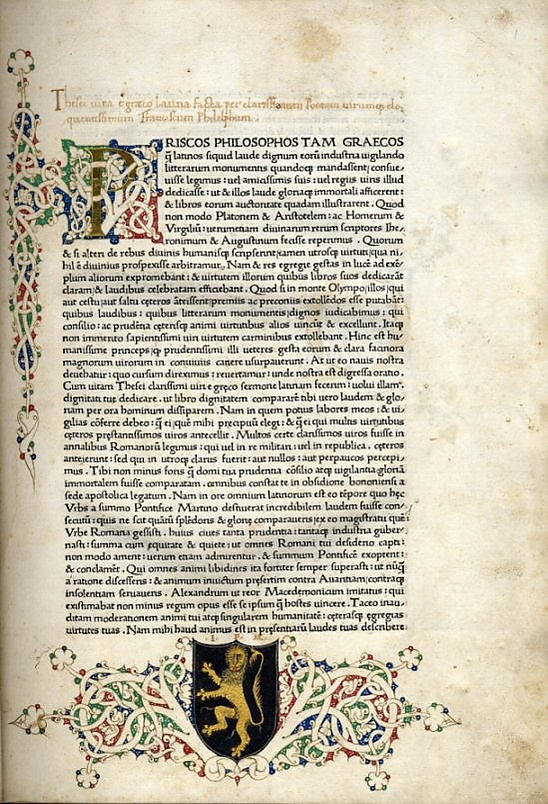 Thesei uita e greco latina facta per clarissimum Poetam uirumq; elo
quentissimum Franciscum Philelphum
PRISCOS PHILOSOPHOS TAM GRAECOS
q̃ latinos siquid laude dignum eorũ industria uigilando
litterarum monumentis quandoq; mandassent: consue
uisse legimus: uel amicissimis suis: uel regiis uiris illud
dedicasse: ut & illos laude gloriaq; immortali afficerent:
& libros eorum auctoritate quadam illustrarent. Quod
non modo Platonem & Aristotelem: ac Homerum &
Virgiliũ: uerumetiam diuinarum rerum scriptores Ihe/
ronimum & Augustinum fecisse reperimus. Quorum
& si alteri de rebus diuinis humanisq; scripserint: tamen utrosq; uirtuti: qua ni/
hil ẽ diuinius prospexisse arbitramur. Nam & res egregie gestas in lucẽ ad exẽ/
plum aliorum expromebant: & uirtutem illorum quibus libros suos dedicarãt
claram: & laudibus celebratam efficiebant. Quod si in monte Olympo: illos: qui
aut cestu: aut saltu cęteros anteissent: premiis ac preconiis extollẽdos esse putabãt:
quibus laudibus: quibus litterarum monumentis: dignos iudicabimus: qui
consilio: ac prudẽtia cęterisq; animi uirtutibus alios uincũt & excellunt. Itaq;
non immerito sapientissimi uiri uirtutem carminibus extollebant. Hinc est hu/
manissime princeps: q̃ prudentissimi illi ueteres gesta eorum & clara facinora
magnorum uirorum in conuiuiis canere usurpauerunt. At ut eo nauis nostra
deuehatur: quo cursum direximus: reuertamur: unde nostra est digressa oratio.
Cum uitam Thesei clarissimi uiri e gręco sermone latinam fecerim: uolui illam:
dignitati tuę dedicare. ut libro dignitatem compararẽ: tibi uero laudem & glo/
riam per ora hominum dissiparem. Nam in quem potius labores meos: & ui/
gilias cõferre debeo: q̃ ei: quẽ mihi precipuũ elegi: & q̃ ei qui multis uirtutibus
cęteros pręstantissimos uiros antecellit. Multos certe clarissimos uiros fuisse in
annalibus Romanis legimus: qui uel in re militari: uel in republica. cęteros
anteierunt: sed qui in utroq; clarus fuerit: aut nullos: aut perpaucos percepi/
mus. Tibi non minus fons q̃ domi tua prudentia cõsilio atq; uigilantia: gloriã
immortalem fuisse comparatam. omnibus constat te in obsidione bononiensi a
sede apostolica legatum. Nam in ore omnium latinorum est eo tẽpore quo hęc
Vrbs a summo Pontifice Martino destiuerat incredibilem laudem fuisse con/
secutũ: quis ne scit quãtũ splẽdoris & glorię comparaueris: ex eo magistratu quẽ
Vrbe Romana gessisti. huius ciues tanta prudentia: tantaq; industria guber/
nasti: summa cum equitate & quiete: ut omnes Romani tui desiderio capti:
non modo ament: uerum etiam admirentur. & summum Pontificẽ exoptent:
& conclamẽt. Qui omnes animi libidines ita fortiter semper superasti: ut nũq̃
a ratione discesseris: & animum inuictum presertim contra Auaritiam: contraq;
insolentiam seruaueris. Alexandrum ut reor Macedemonicum imitatus: qui
existimabat non minus regium opus esse se ipsum q̃ hostes uincere. Taceo inau/
ditam moderationem animi tui: atq; singularem humanitatẽ: cęterasq; egregias
uirtutes tuas. Nam mihi haud animus est in pręsentiarũ laudes tuas describere